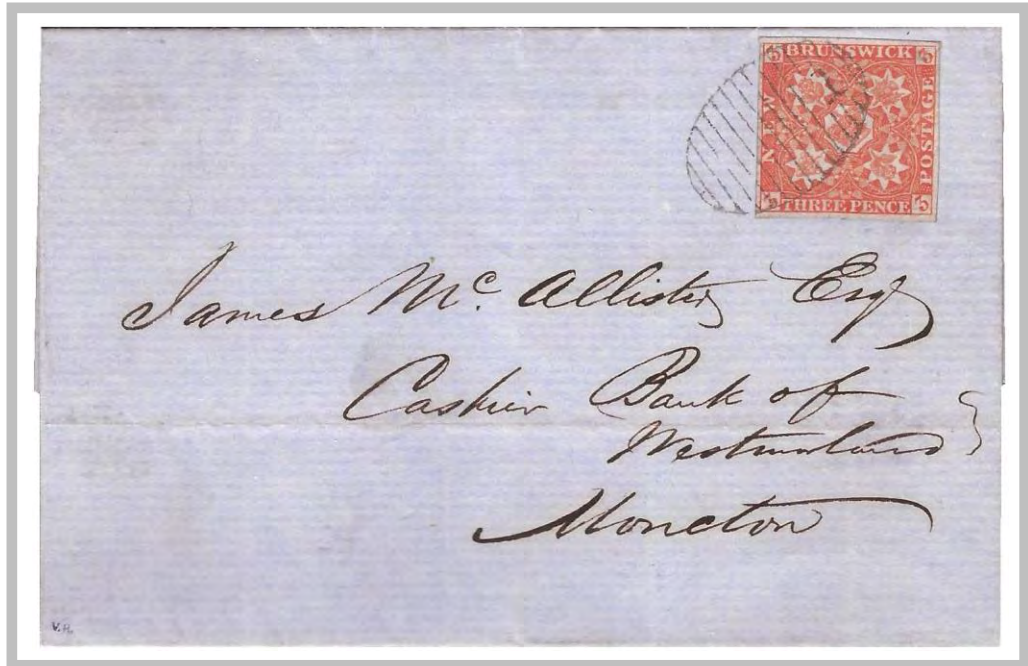 BRUNSWICK
NEW
POSTAGE
THREE PENCE
James Mc. Allister Esqr
Cashier Bank of
Westmorland
Moncton
V.R.